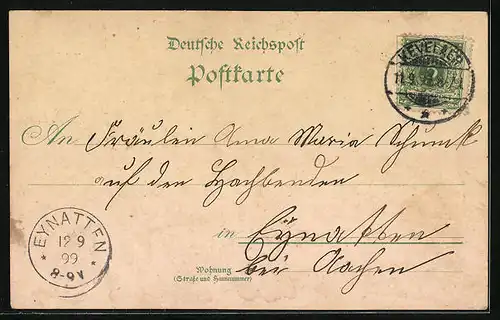 Deutsche Reichspost
Postkarte
KEVELAER
11.9.
An Fräulein Anna Maria Schunck
auf den Hachbenden
in Eynatten
bei Aachen
Wohnung
(Straße und Hausnummer)
EYNATTEN
12 9
99
8-9V